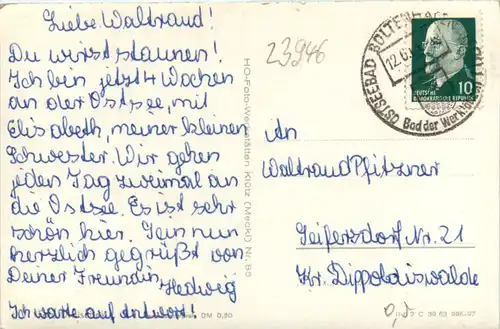 Liebe Waltraud!
Du wirst staunen!
Ich bin jetzt 4 Wochen
an der Ostsee, mit
Elisabeth, meiner kleinen
Schwester. Wir gehen
jeden Tag zweimal an
die Ostsee. Es ist sehr
schön hier. Sein nun
herzlich gegrüßt von
Deiner Freundin
Hedwig
Ich warte auf Antwort!
DM 0,20
HO-Foto-Werkstätten Klütz (Meckl) Nr. 86
23946
OSTSEEBAD BOLTENHAGEN
12.6
Bad der Werktätigen
10
DEUTSCHE
DEMOKRATISCHE REPUBLIK
An
Waltraud Pfitzner
Seifersdorf Nr. 21
Kr. Dippoldiswalde